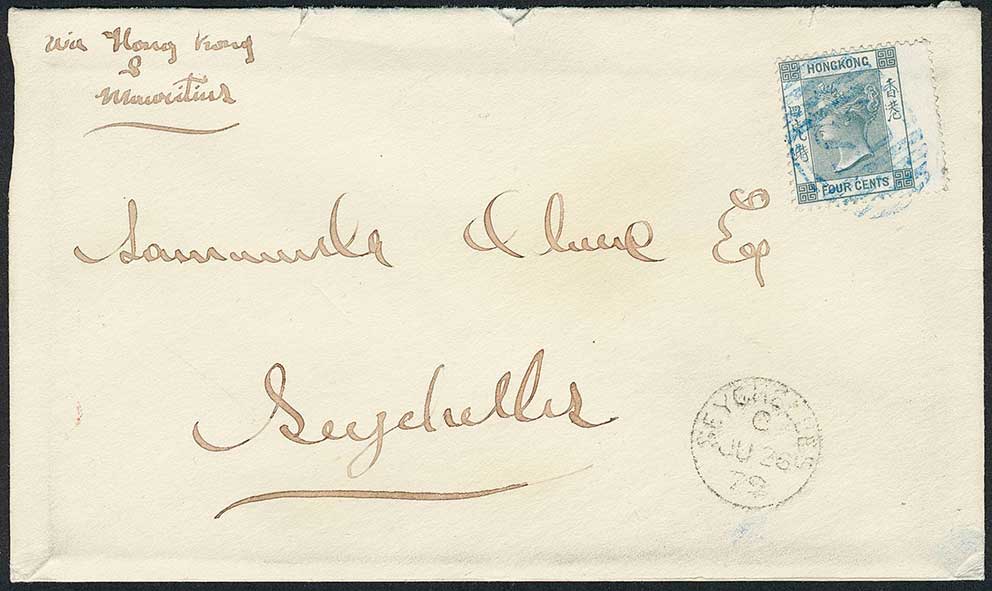 via Hong Kong
&
Mauritius
HONGKONG
香港
四先時
FOUR CENTS
Esq
Seychelles
SEYCHELLES
C
JU 26
79